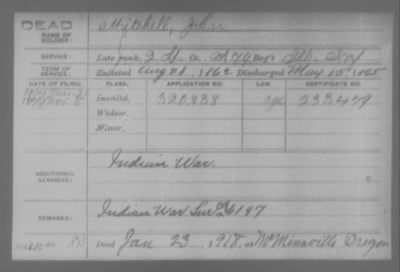 DEAD
NAME OF SOLDIER:
Mitchell, John
SERVICE:
Late rank, 2 Lt Co. Reg't Ills. Inf
TERM OF SERVICE:
Enlisted Aug 21, 1862 Discharged May 15, 1865
DATE OF FILING.
CLASS.
APPLICATION NO.
LAW.
CERTIFICATE NO.
Invalid,
320,838
233,449
Widow.
Minor,
ADDITIONAL SERVICES:
Indian War.
REMARKS:
Indian War Sur
Died Jan 23, 1918, at McMinnville Oregon